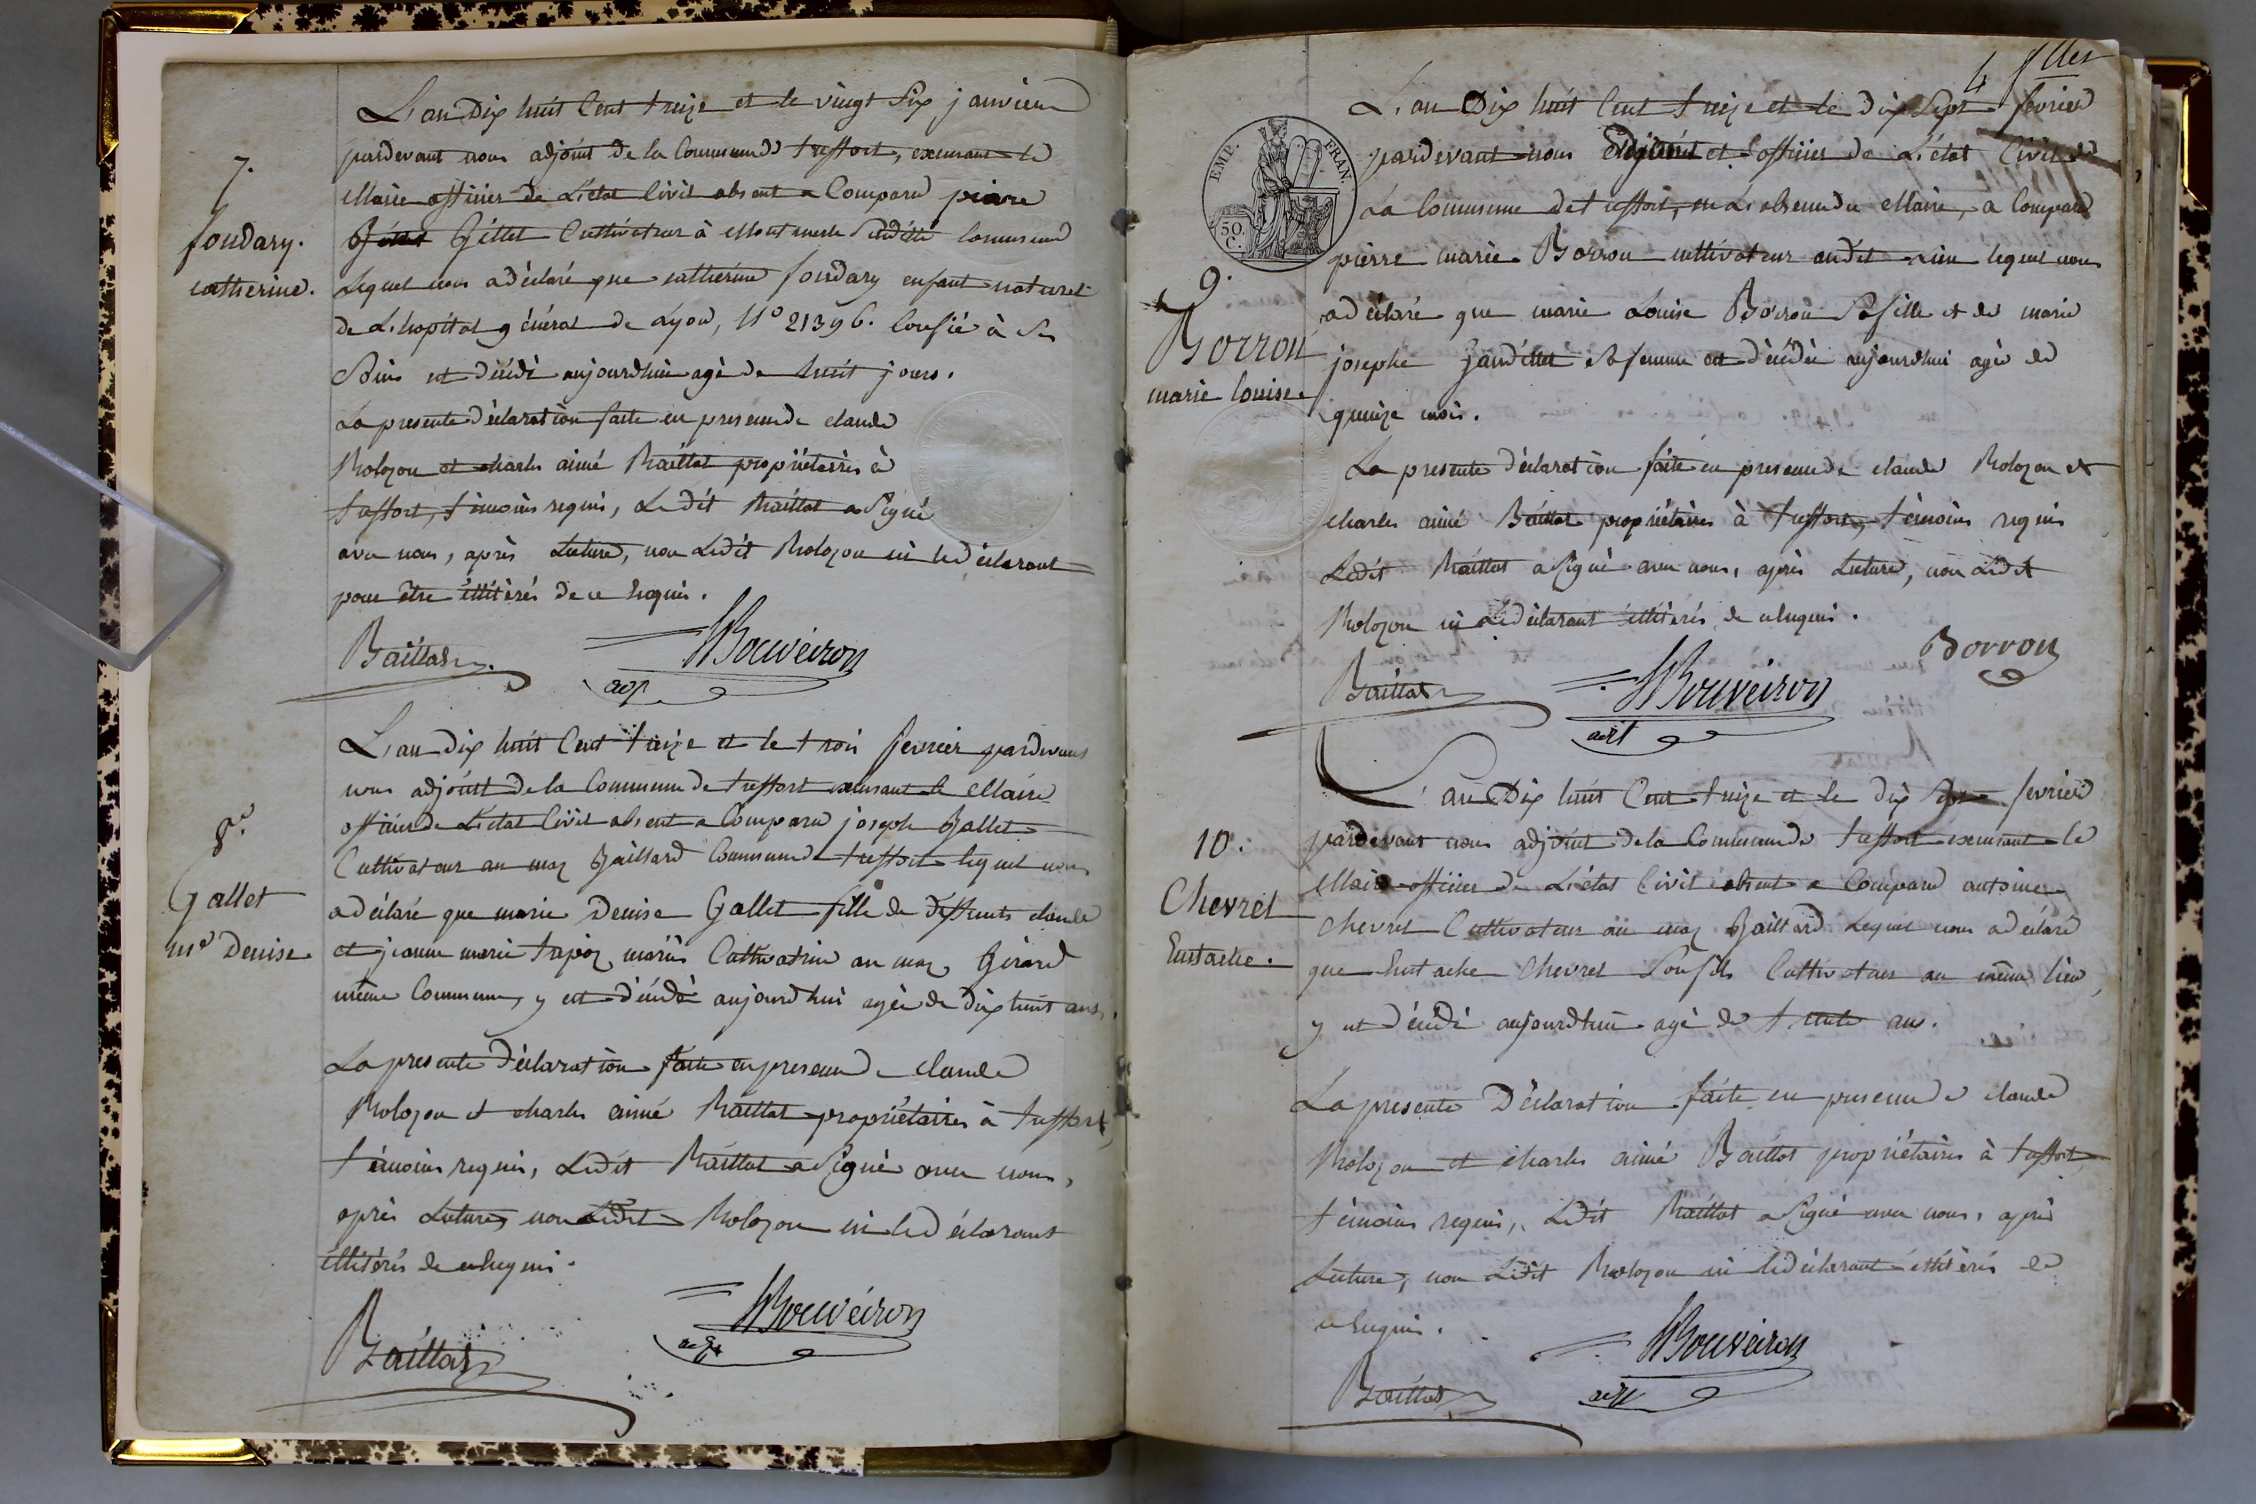 7.
fondary.
catherine.
L'an Dix huit Cent treize et le vingt Six janvier
pardevant nous adjoint de la Commune de treffort, excusant le
Maire officier de L'état Civil absent a Comparu pierre
Gillet Cultivateur à Montmerle Susditte Commune
Lequel nous a déclaré que catherine fondary enfant naturel
de L'hopital général de Lyon, N° 21396. Confié à Ses
Soins est décédé aujourdhui agé de huit jours.
La presente déclaration faite en presence de claude
Molozon et charles aimé Baillat propriétaires à
treffort, témoins requis, Ledit Baillat a Signé
avec nous, après Lecture, non Ledit Molozon ni le déclarant
pour être illitérés de ce Enquis.
Baillat
Bouveiron
adj
8.
Gallet
me Denise
L'an dix huit Cent treize et le trois fevrier pardevant
nous adjoint de la Commune de treffort excusant le Maire
officier de L'état Civil absent a Comparu joseph Gallet
Cultivateur au maz Gaillard Commune de treffort lequel nous
a déclaré que marie Denise Gallet fille de deffunts claude
et jeanne marie trepoz mariés Cultivatrice au maz Girard
même Commune, y est décédé aujourdhui agée de dix huit ans.
La presente déclaration faite en presence de claude
Molozon et charles aimé Baillat propriétaires à treffort,
témoins requis, Ledit Baillat a Signé avec nous,
après Lecture, non Ledit Molozon ni le déclarant
illitérés de ce Enquis.
Baillat
Bouveiron
adjt
4
EMP. FRAN
50. C.
9.
Borron
marie louise
L'an Dix huit Cent treize et le dix Sept fevrier
pardevant nous adjoint et officier de L'état Civil de
La Commune de treffort, en L'absence du Maire, a Comparu
pierre marie Borron cultivateur audit lieu lequel nous
a déclaré que marie Louise Borron Sa fille et de marie
josephe Gandillet Sa femme est décédée aujourdhui agée de
quinze mois.
La presente déclaration faite en presence de claude Molozon et
charles aimé Baillat propriétaires à treffort, témoins requis
Ledit Baillat a Signé avec nous, après Lecture, non Ledit
Molozon ni Le déclarant illitérés de ce Enquis.
Borron
Baillat
Bouveiron
adjt
10.
Chevret
Eustache.
L'an Dix huit Cent treize et le dix Sept fevrier
pardevant nous adjoint de la Commune de treffort excusant le
Maire officier de L'état Civil absent a Comparu antoine
Chevret Cultivateur au maz Gaillard Lequel nous a déclaré
que Eustache Chevret Son fils Cultivateur au même lieu,
y est décédé aujourdhui agé de trente ans.
La presente Déclaration faite en presence de claude
Molozon et charles aimé Baillat propriétaires à treffort,
témoins requis, Ledit Baillat a Signé avec nous, après
Lecture, non Ledit Molozon ni le déclarant illitérés de
ce Enquis.
Baillat
Bouveiron
adjt